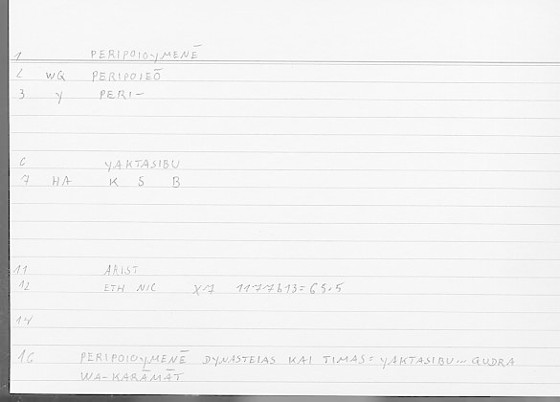 1 PERIPOIOYMENĒ
2 WQ PERIPOIEŌ
3 Y PERI-
6 YAKTASIBU
7 HA K S B
11 ARIST
12 ETH NIC X7 1177b13=65.5
14
16 PERIPOIOYMENĒ DYNASTEIAS KAI TIMAS= YAKTASIBU... QUDRA
WA-KARĀMĀT